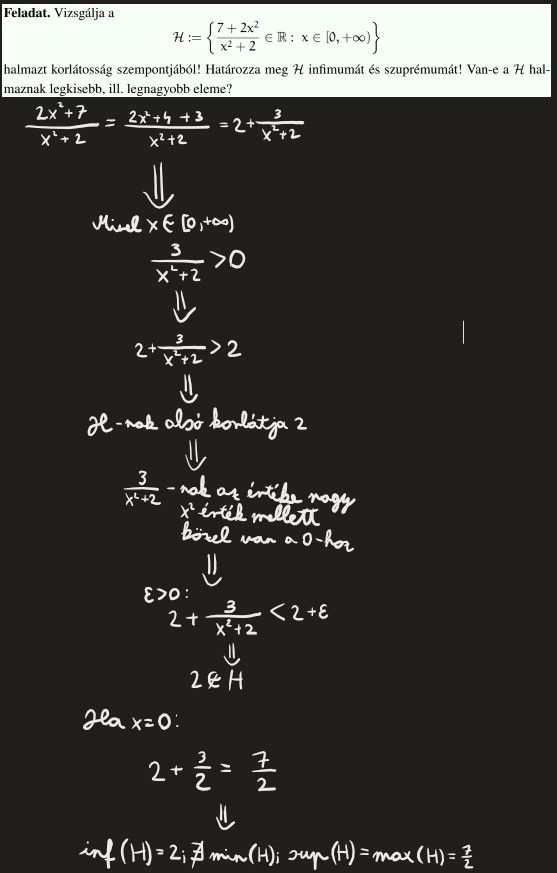 Feladat. Vizsgálja a
ℋ := { (7 + 2x²)/(x² + 2) ∈ ℝ : x ∈ [0, +∞) }
halmazt korlátosság szempontjából! Határozza meg ℋ infimumát és szuprémumát! Van-e a ℋ hal-
maznak legkisebb, ill. legnagyobb eleme?
(2x²+7)/(x²+2) = (2x²+4+3)/(x²+2) = 2 + 3/(x²+2)
⇓
Mivel x ∈ [0, +∞)
3/(x²+2) > 0
⇓
2 + 3/(x²+2) > 2
⇓
ℋ-nak alsó korlátja 2
⇓
3/(x²+2) -nak az értéke nagy
x² érték mellett
közel van a 0-hoz
⇓
ε>0:
2 + 3/(x²+2) < 2+ε
⇓
2 ∉ H
Ha x=0:
2 + 3/2 = 7/2
⇓
inf(H)=2; ∄ min(H); sup(H)=max(H)=7/2